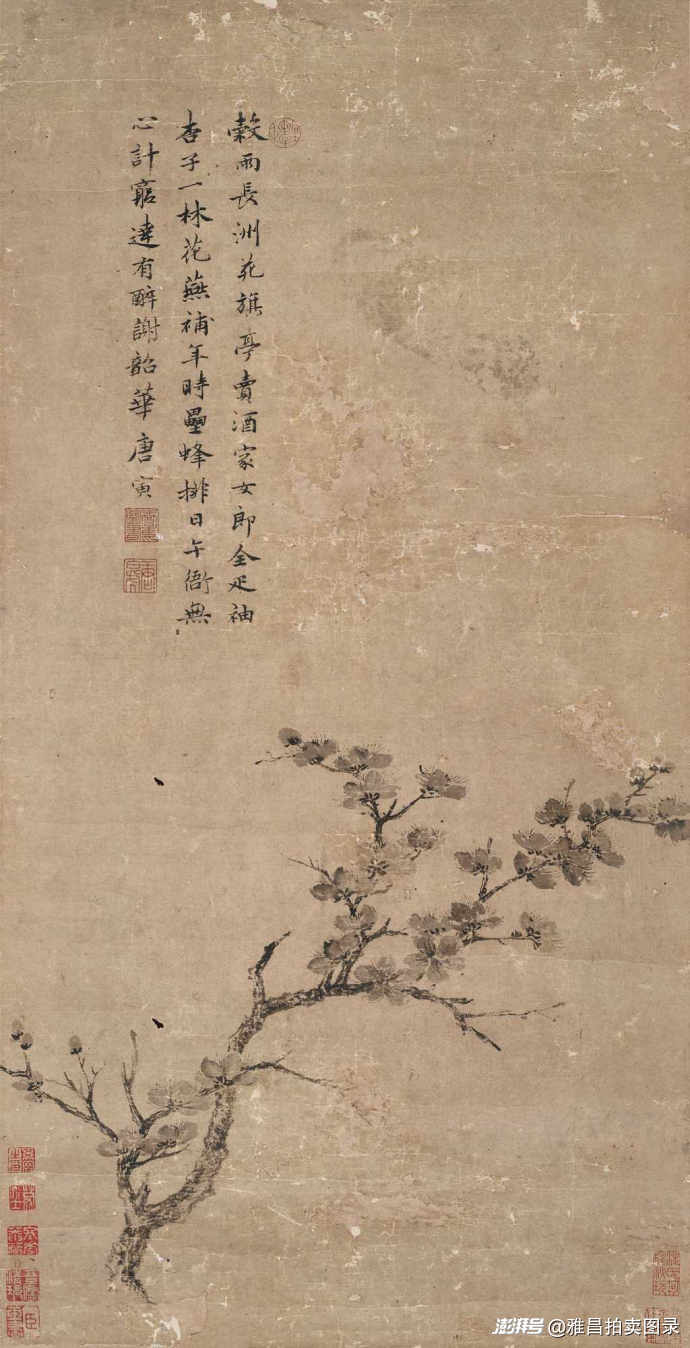 穀雨長洲苑旗亭賣酒家女郎全疋袖
杏子一林花燕補年時壘蜂排日午衙無
心計窮達有醉謝韶華唐寅
澎湃号@雅昌拍卖图录